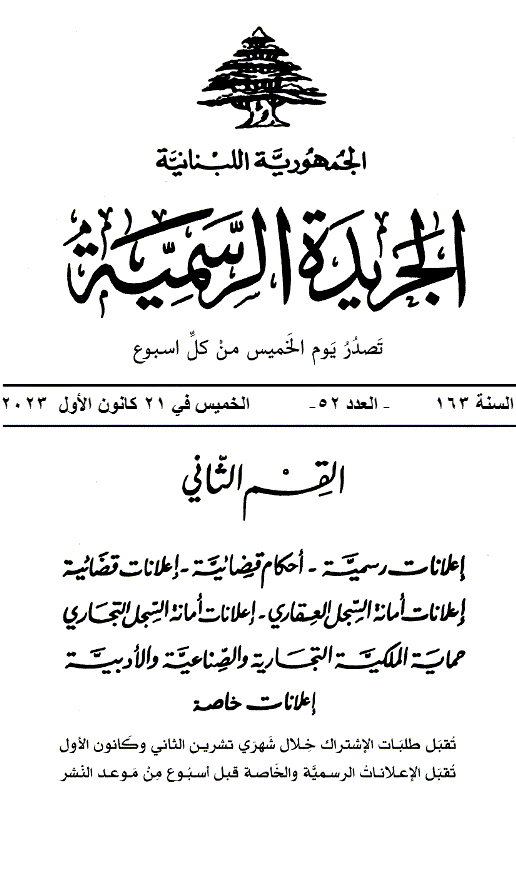 الجمهورية اللبنانية
الجريدة الرسمية
تَصدُرُ يَوم الخَميس منْ كلِّ اسبوع
السنة ١٦٣ - العدد ٥٢- الخميس في ٢١ كانون الأول ٢٠٢٣
القِسْم الثّاني
إعلانات رسميَّة - أحكام قضائيَّة - إعلانات قضائية
إعلانات أمانة السِّجل العِقاري - إعلانات أمانة السِّجل التجاري
حماية الملكيَّة التجارية والصِّناعيَّة والأدبيَّة
إعلانات خاصة
تُقبَل طلبَات الإشتراك خِلال شَهرَي تشرين الثاني وكَانون الأول
تُقبَل الإعلاناتُ الرسميَّة والخَاصة قبل أسبُوع مِنْ مَوعد النَشر